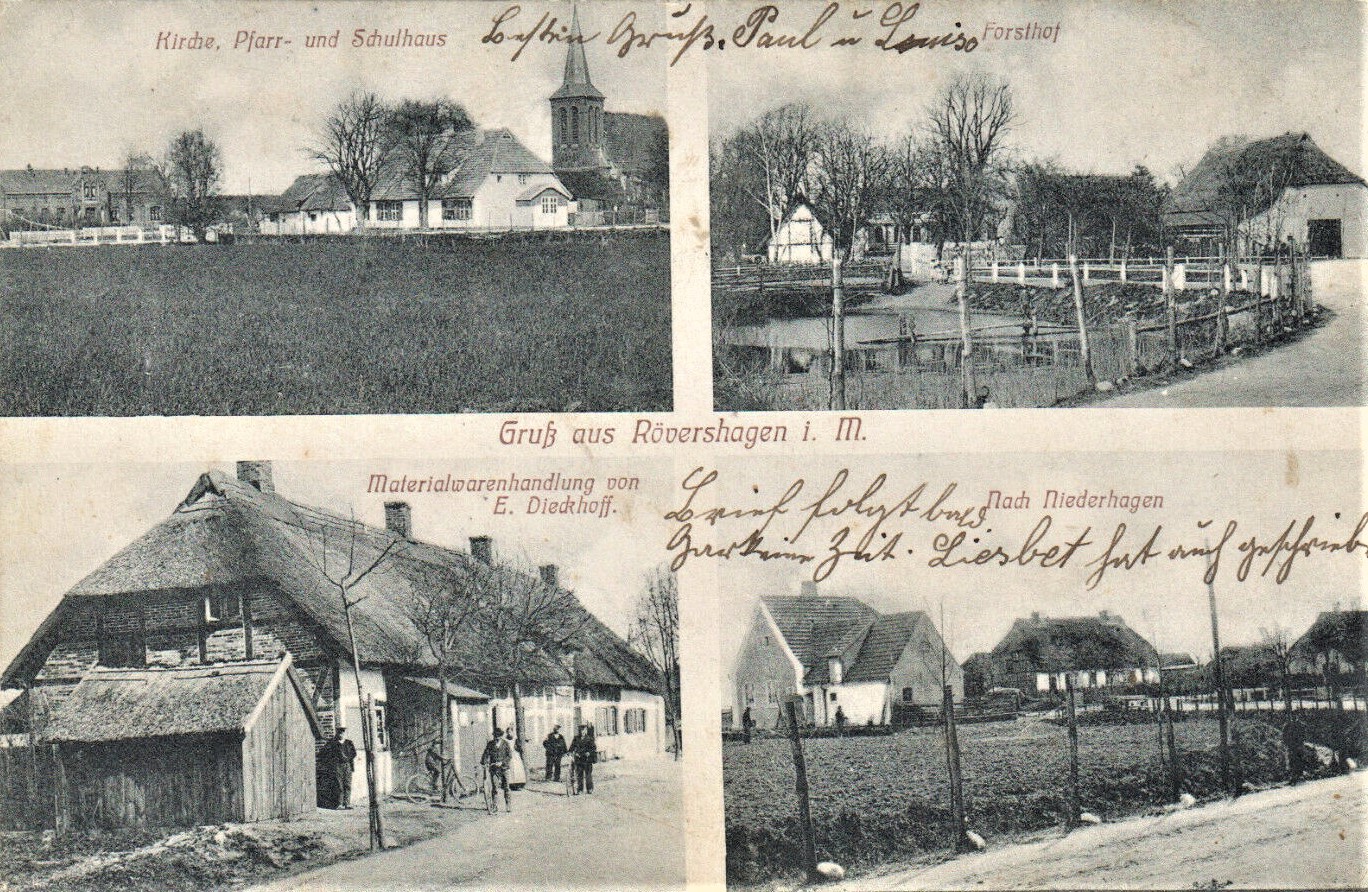 Kirche, Pfarr- und Schulhaus
Besten Gruß. Paul u Louise
Forsthof
Gruß aus Rövershagen i. M.
Materialwarenhandlung von
E. Dieckhoff.
Brief folgt bald
Nach Niederhagen
Gar keine Zeit. Liesbet hat auch geschrieb